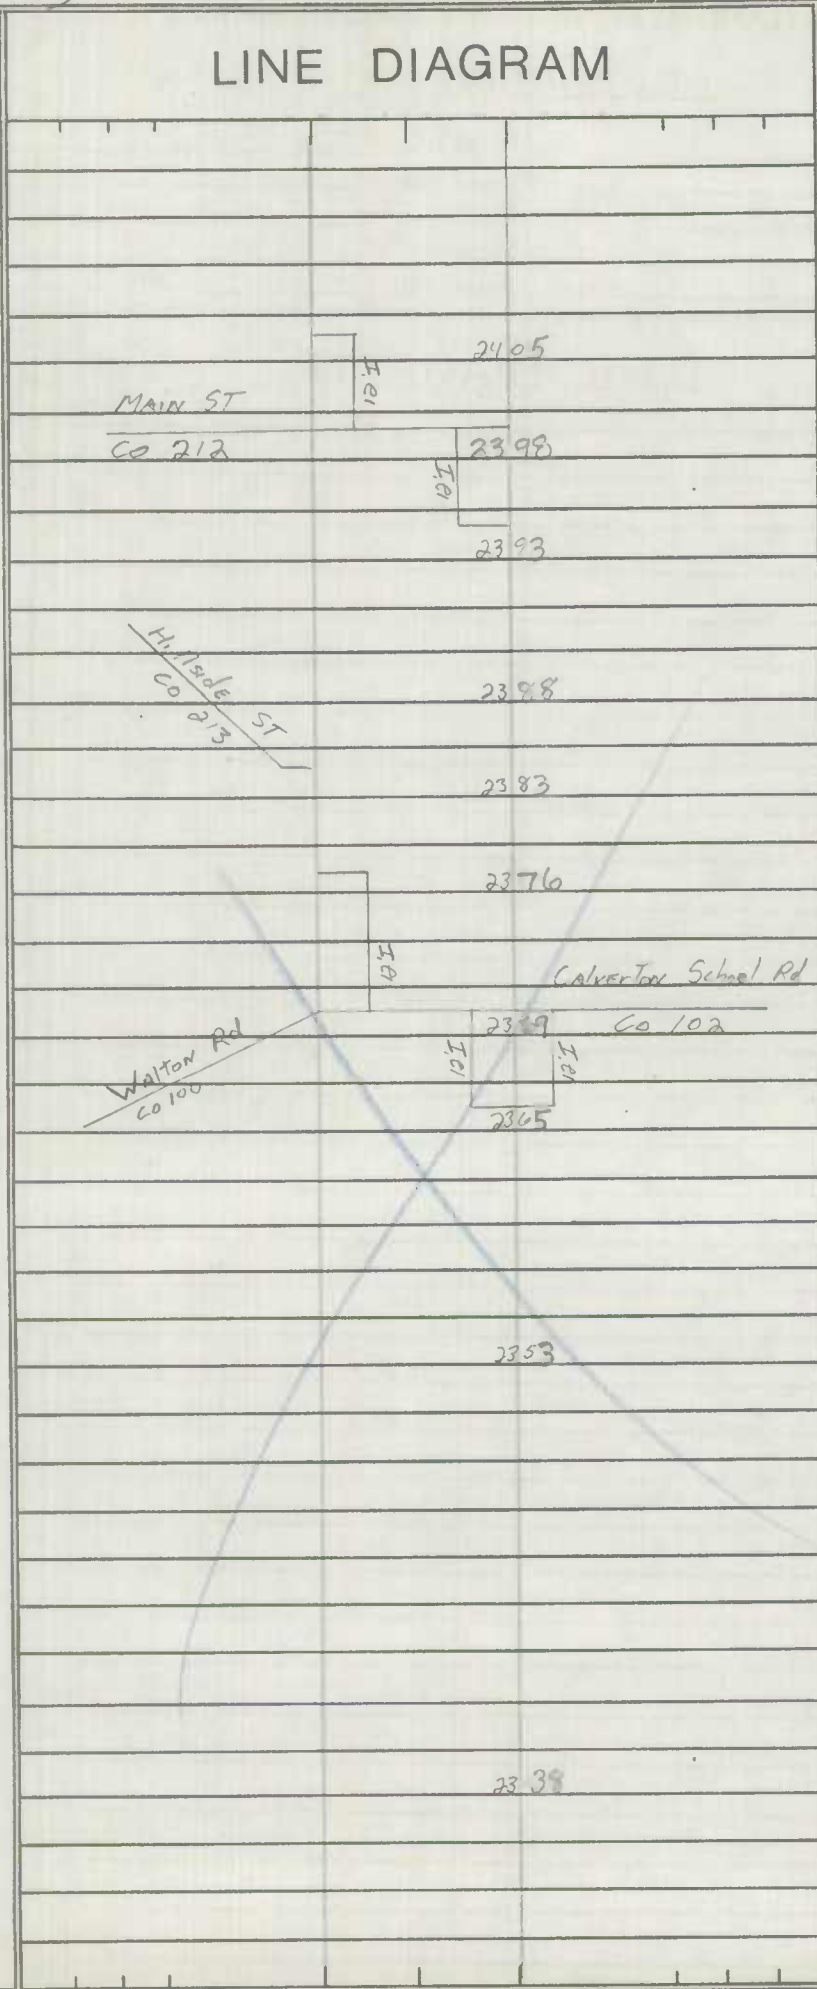 LINE DIAGRAM
2405
MAIN ST
CO 212
2398
2393
Hillside ST
CO 213
2388
2383
2376
Calverton School Rd
CO 102
Walton Rd
CO 100
2365
2353
2338